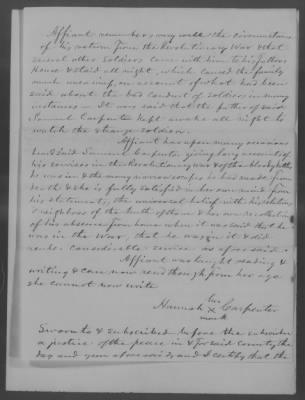 Affiant remembers very well the circumstances
of his return from the Revolutionary War & that
several other soldiers came with him to his fathers
House & staid all night, which caused the family
much uneasiness, on account of what had been
said about the bad conduct of soldiers in many
instances - It was said that the father of said
Samuel Carpenter kept awake all night to
watch the strange soldiers.
Affiant has upon many occasions
heard said Samuel Carpenter giving long accounts of
his services in the Revolutionary war & of the bloody battles
he was in & the many narrow escapes he had made from
death & she is fully satisfied in her own mind from
his statements, the universal belief with his relations
& neighbors of the truth of them & her own recollection
of his absence from home when it was said that he
was in the War, that he was in it & did
render considerable service as aforesaid.
Affiant was taught reading &
writing & can now read though from her age
she cannot now write
her
Hannah X Carpenter
mark
Sworn to & subscribed before the subscriber
a justice of the peace in & for said county the
day and year aforesaid, and I certify that the